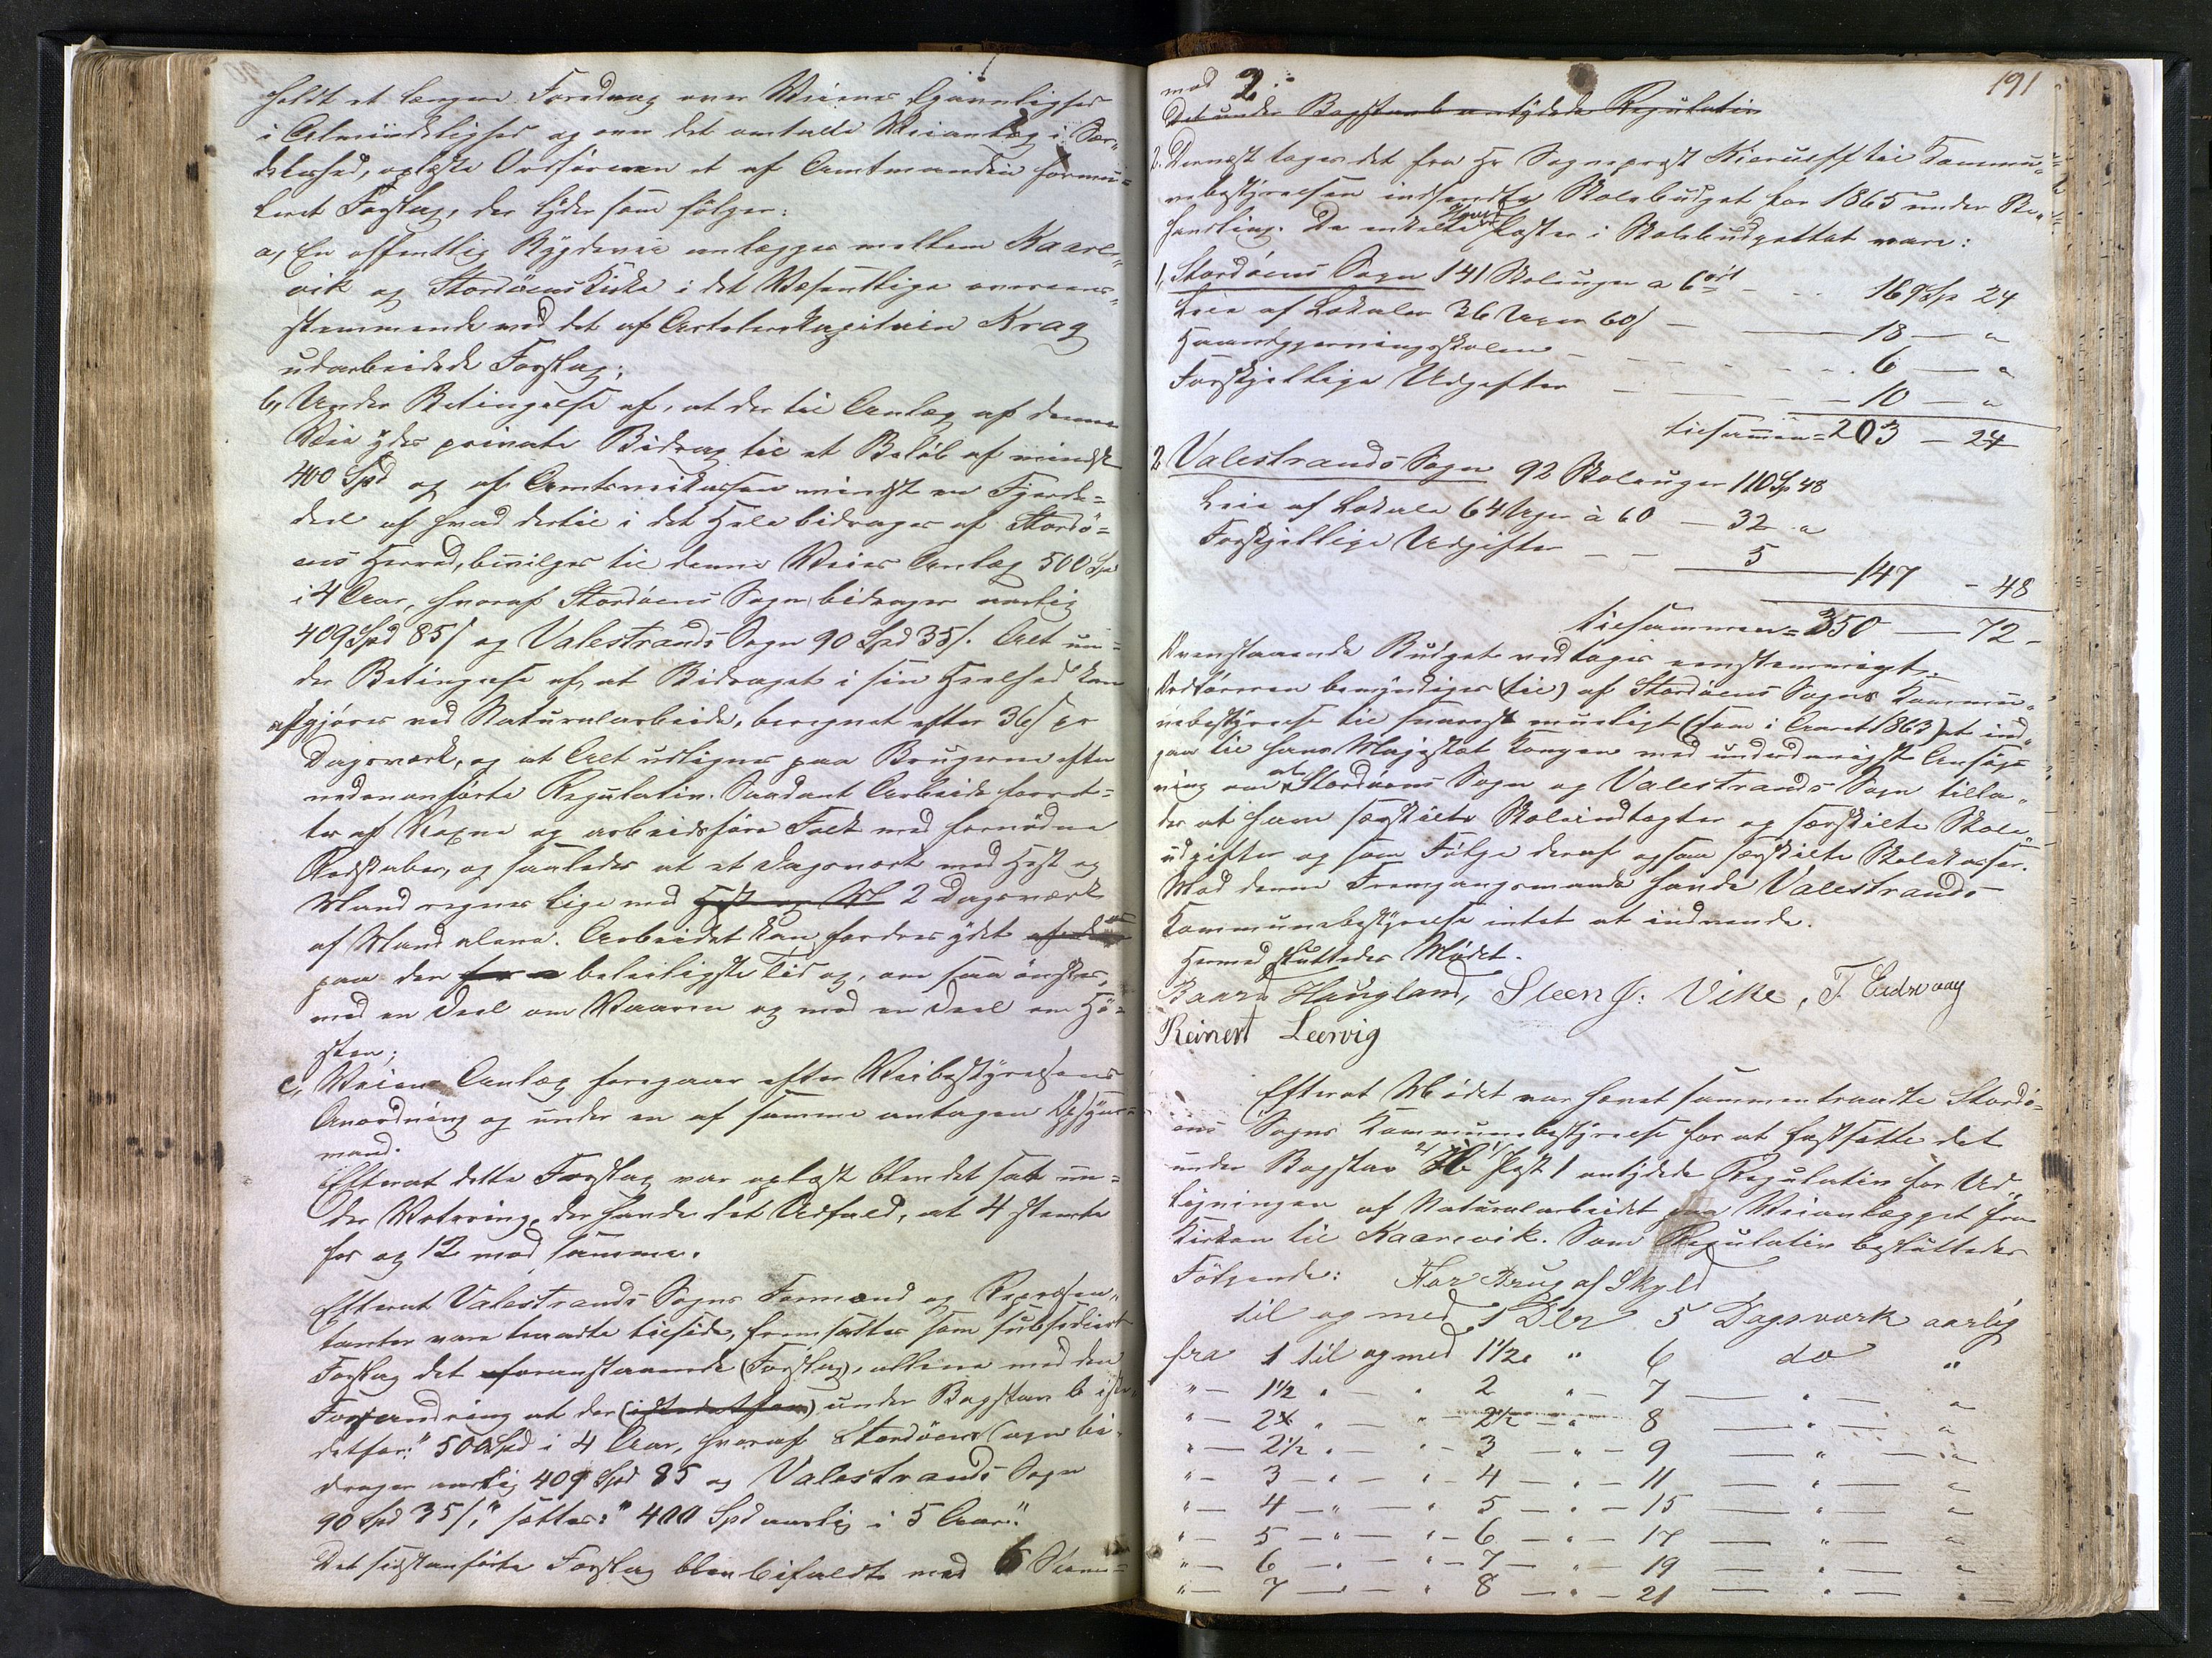 holdt et længere Foredrag over Veienes Gavnlighed
i Almindelighed og over det omtalte Veianlæg i Sær-
deleshed, oplæste Ordføreren et af Amtmanden formu-
leret Forslag, der lyder som følger:
a, En offentlig Bygdevei anlægges mellem Kaare-
vik og Stordøens Kirke i det Væsentlige overeens-
stemmende med det af Artolerikapitain Krag
udarbeidede Forslag;
b, Under Betingelse af, at der til Anlæg af denne
Vei ydes private Bidrag til et Beløb af mindst
400 Spd og af Amtsveikassen mindst en Fjerde-
deel af hvad dertil i det Hele bidrages af Stordø-
ens Herred, bevilges til denne Veies Anlæg 500 Spd
i 4 Aar, hvoraf Stordøens Sogn bidrager aarlig
409 Spd 85 s og Valestrands Sogn 90 Spd 35 s. Alt un-
der Betingelse af, at Bidraget i sin Heelhed kan
afgjøres ved Naturalarbeide, beregnet efter 36 s pr
Dagsværk, og at Alt udlignes paa Brugerne efter
nedenanførte Regulativ. Saadant Arbeide forret-
tes af Voxne og arbeidsføre Folk med fornødne
Redskaber, og saaledes at et Dagsværk med Hest og
Mand regnes lige med Hest og M 2 Dagsværk
af Mand alene. Arbeidet kan fordres ydet
paa den for beleiligste Tid og, om saa ønskes,
med en Deel om Vaaren og med en Deel om Hø-
sten;
c, Veiens Anlæg foregaar efter Veibestyrelsens
Anordning og under en af samme antagen Opsyns-
mand.
Efterat dette Forslag var oplæst blev det sat un-
der Votering, der havde det Udfald, at 4 stemte
for og 12 mod samme.
Efterat Valestrands Sogns Formænd og Repræsen-
tanter vare traadte tilside, fremsattes som subsidiært
Forslag det foranstaaende (Forslag), allene med den
Forandring at der (istedetfor) under Bogstav b iste-
detfor: "500 Spd i 4 Aar, hvoraf Stordøens Sogn bi-
drager aarlig 409 Spd 85 og Valestrands Sogn
90 Spd 35 s," sættes: "400 Spd aarlig i 5 Aar."
Det sidstanførte Forslag blev bifaldt med 6 Stem-
191
mod 2.
Det under Bogstav b antydede Regulativ
2. Dernæst toges det fra Hr Sognepræst Kierulff til Kommu-
nebestyrelsen indsendte Skolebudget for 1865 under Be-
handling. De enkelte Poster i Skolebudgettet vare:
1, Stordøens Sogn 141 Skoleuger a 6 ort - - 169 Sp 24
Leie af Lokaler 36 Uger 60 s — 18 — "
Haandgjerningsskolen - - - 6 — "
Forskjellige Udgifter — - - 10 — "
tilsammen = 203 — 24
2 Valestrands Sogn 92 Skoleuger 110 Sp 48
Leie af Lokale 64 Uger à 60 — 32 "
Forskjellige Udgifter — — 5 — 147 - 48
tilsammen = 350 — 72 -
Ovenstaaende Budget vedtoges eenstemmigt.
Ordføreren bemyndiges (til) af Stordøens Sogns Kommu-
nebestyrelse til snarest mueligt (som i Aaret 1863) at ind-
gaa til Hans Majestæt Kongen med underdanigst Ansøg-
ning om at Stordøens Sogn og Valestrands Sogn tilla-
des at have særskilte Skoleindtægter og særskilte Skole-
udgifter og som Følge deraf ogsaa særskilte Skolekasser.
Mod denne Fremgangsmaade havde Valestrands
Kommunebestyrelse intet at indvende.
Hermed sluttedes Mødet.
Baard Haugland, Steen J: Vike, T. Eidsvaag
Reinert Leervig
Efterat Mødet var hævet sammentraadte Stordø-
ens Sogns Kommunebestyrelse for at fastsætte det
under Bogstav "b" Post 1 antydede Regulativ for Ud-
ligningen af Naturalarbeidet paa Veianlægget fra
Kirken til Kaarevik. Som Regulativ besluttedes
Følgende: For Brug af Skyld
til og med 1 Dlr 5 Dagsværk aarlig
fra 1 til og med 1½ " 6 do "
" — 1½ " — " 2 " — 7 — " — "
" — 2 " — " — 2½ — " 8 — " — "
" — 2½ " — " — 3 — " — 9 — " — "
" — 3 — " — " 4 — " — 11 — " — "
" — 4 — " — " 5 — " — 15 — " — "
" — 5 — " — " — 6 — " — 17 — " — "
" — 6 — " — " — 7 — " — 19 — " — "
" — 7 — " — " 8 — " — 21 — " — "